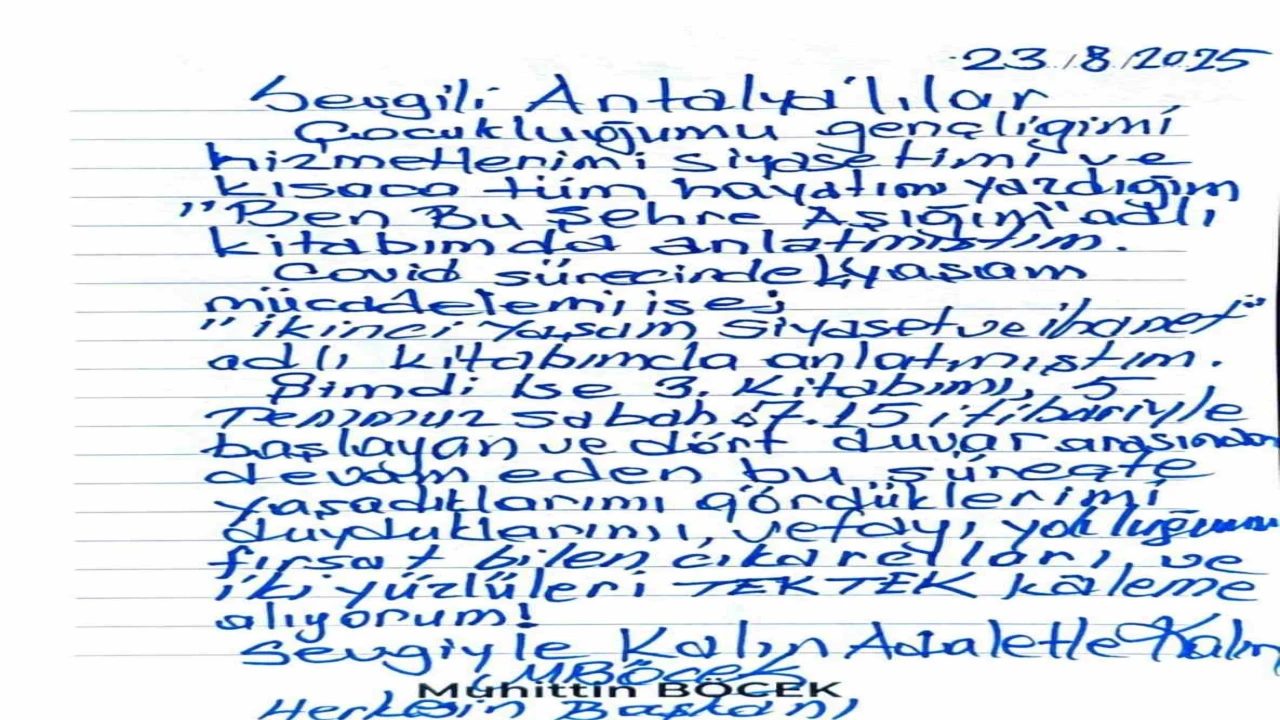 23/8/2025
Sevgili Antalya'lılar
Çocukluğumu gençligimi
hizmetlerimi siyasetimi ve
kısaca tüm hayatımı yazdığım
"Ben Bu Şehre Aşığım" adlı
kitabımda anlatmıştım.
Covid sürecindeki yaşam
mücadelemi ise;
"ikinci Yaşam Siyaset ve ihanet"
adlı kitabımda anlatmıştım.
Şimdi ise 3. Kitabımı, 5
Temmuz sabah 07.15 itibariyle
başlayan ve dört duvar arasında
devam eden bu süreçte
yaşadıklarımı gördüklerimi
duyduklarımı, vefayı, yokluğumu
fırsat bilen çıkarcıları, ve
iki yüzlüleri TEK TEK kaleme
alıyorum!
Sevgiyle Kalın Adaletle Kalın
MBÖCEK
Muhittin BÖCEK
Herkesin Başkanı